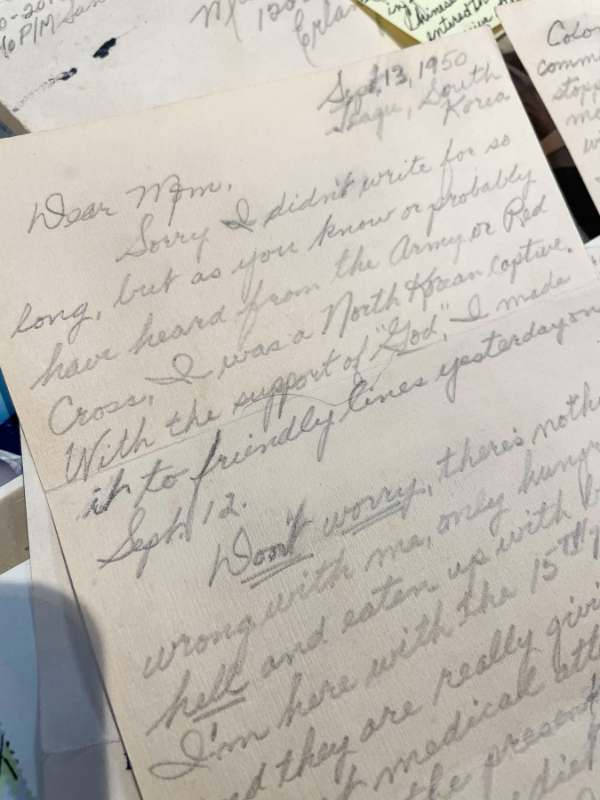 0-20
P/M
Erla
Chinese
entered th
Colo
comm
stopp
mo
wi
Sept. 13, 1950
Taegu, South
Korea
Dear Mom,
Sorry I didn't write for so
long, but as you know or probably
have heard from the Army or Red
Cross, I was a North Korean captive.
With the support of "God", I made
it to friendly lines yesterday on
Sept. 12.
Don't worry, there's noth
wrong with me, only hungr
hell and eaten up with b
I'm here with the 15th
they are really givi
medical att
the present
diet